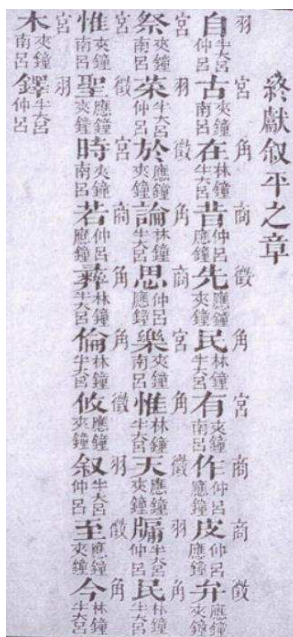 終獻叙平之章
自羽半大呂仲呂古宮夾鐘南呂在角林鐘半大呂昔商仲呂應鐘先徵應鐘夾鐘民角林鐘半大呂有宮夾鐘南呂作商仲呂應鐘皮商仲呂應鐘弁徵應鐘夾鐘
祭宮夾鐘南呂菜羽半大呂仲呂於徵應鐘夾鐘論角林鐘半大呂思商仲呂應鐘樂宮夾鐘南呂惟角林鐘半大呂天徵應鐘夾鐘牖羽半大呂仲呂民角林鐘半大呂
惟宮夾鐘南呂聖徵應鐘夾鐘時宮夾鐘南呂若商仲呂應鐘彝角林鐘半大呂倫角林鐘半大呂攸徵應鐘夾鐘叙羽半大呂仲呂至徵應鐘夾鐘今角林鐘半大呂
木宮夾鐘南呂鐸羽半大呂仲呂